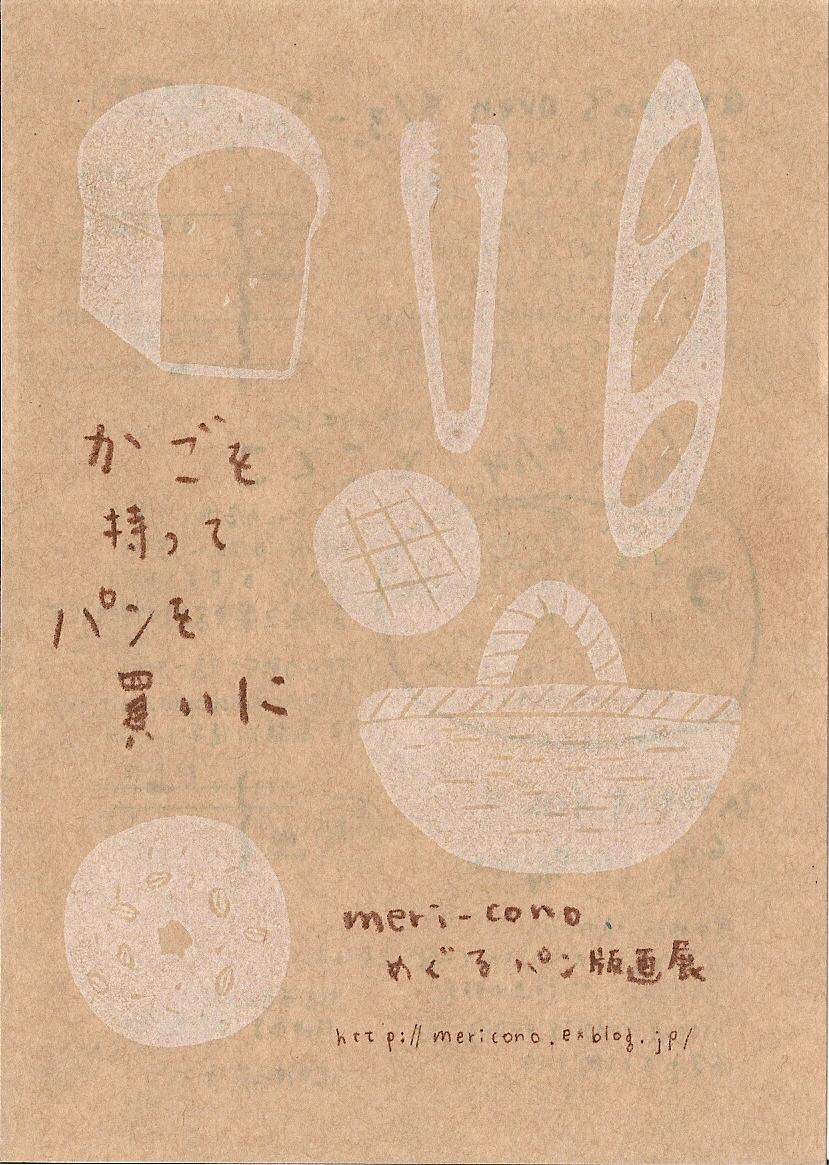 かごを
持って
パンを
買いに
meri-cono
めぐるパン版画展
http://mericono.exblog.jp/